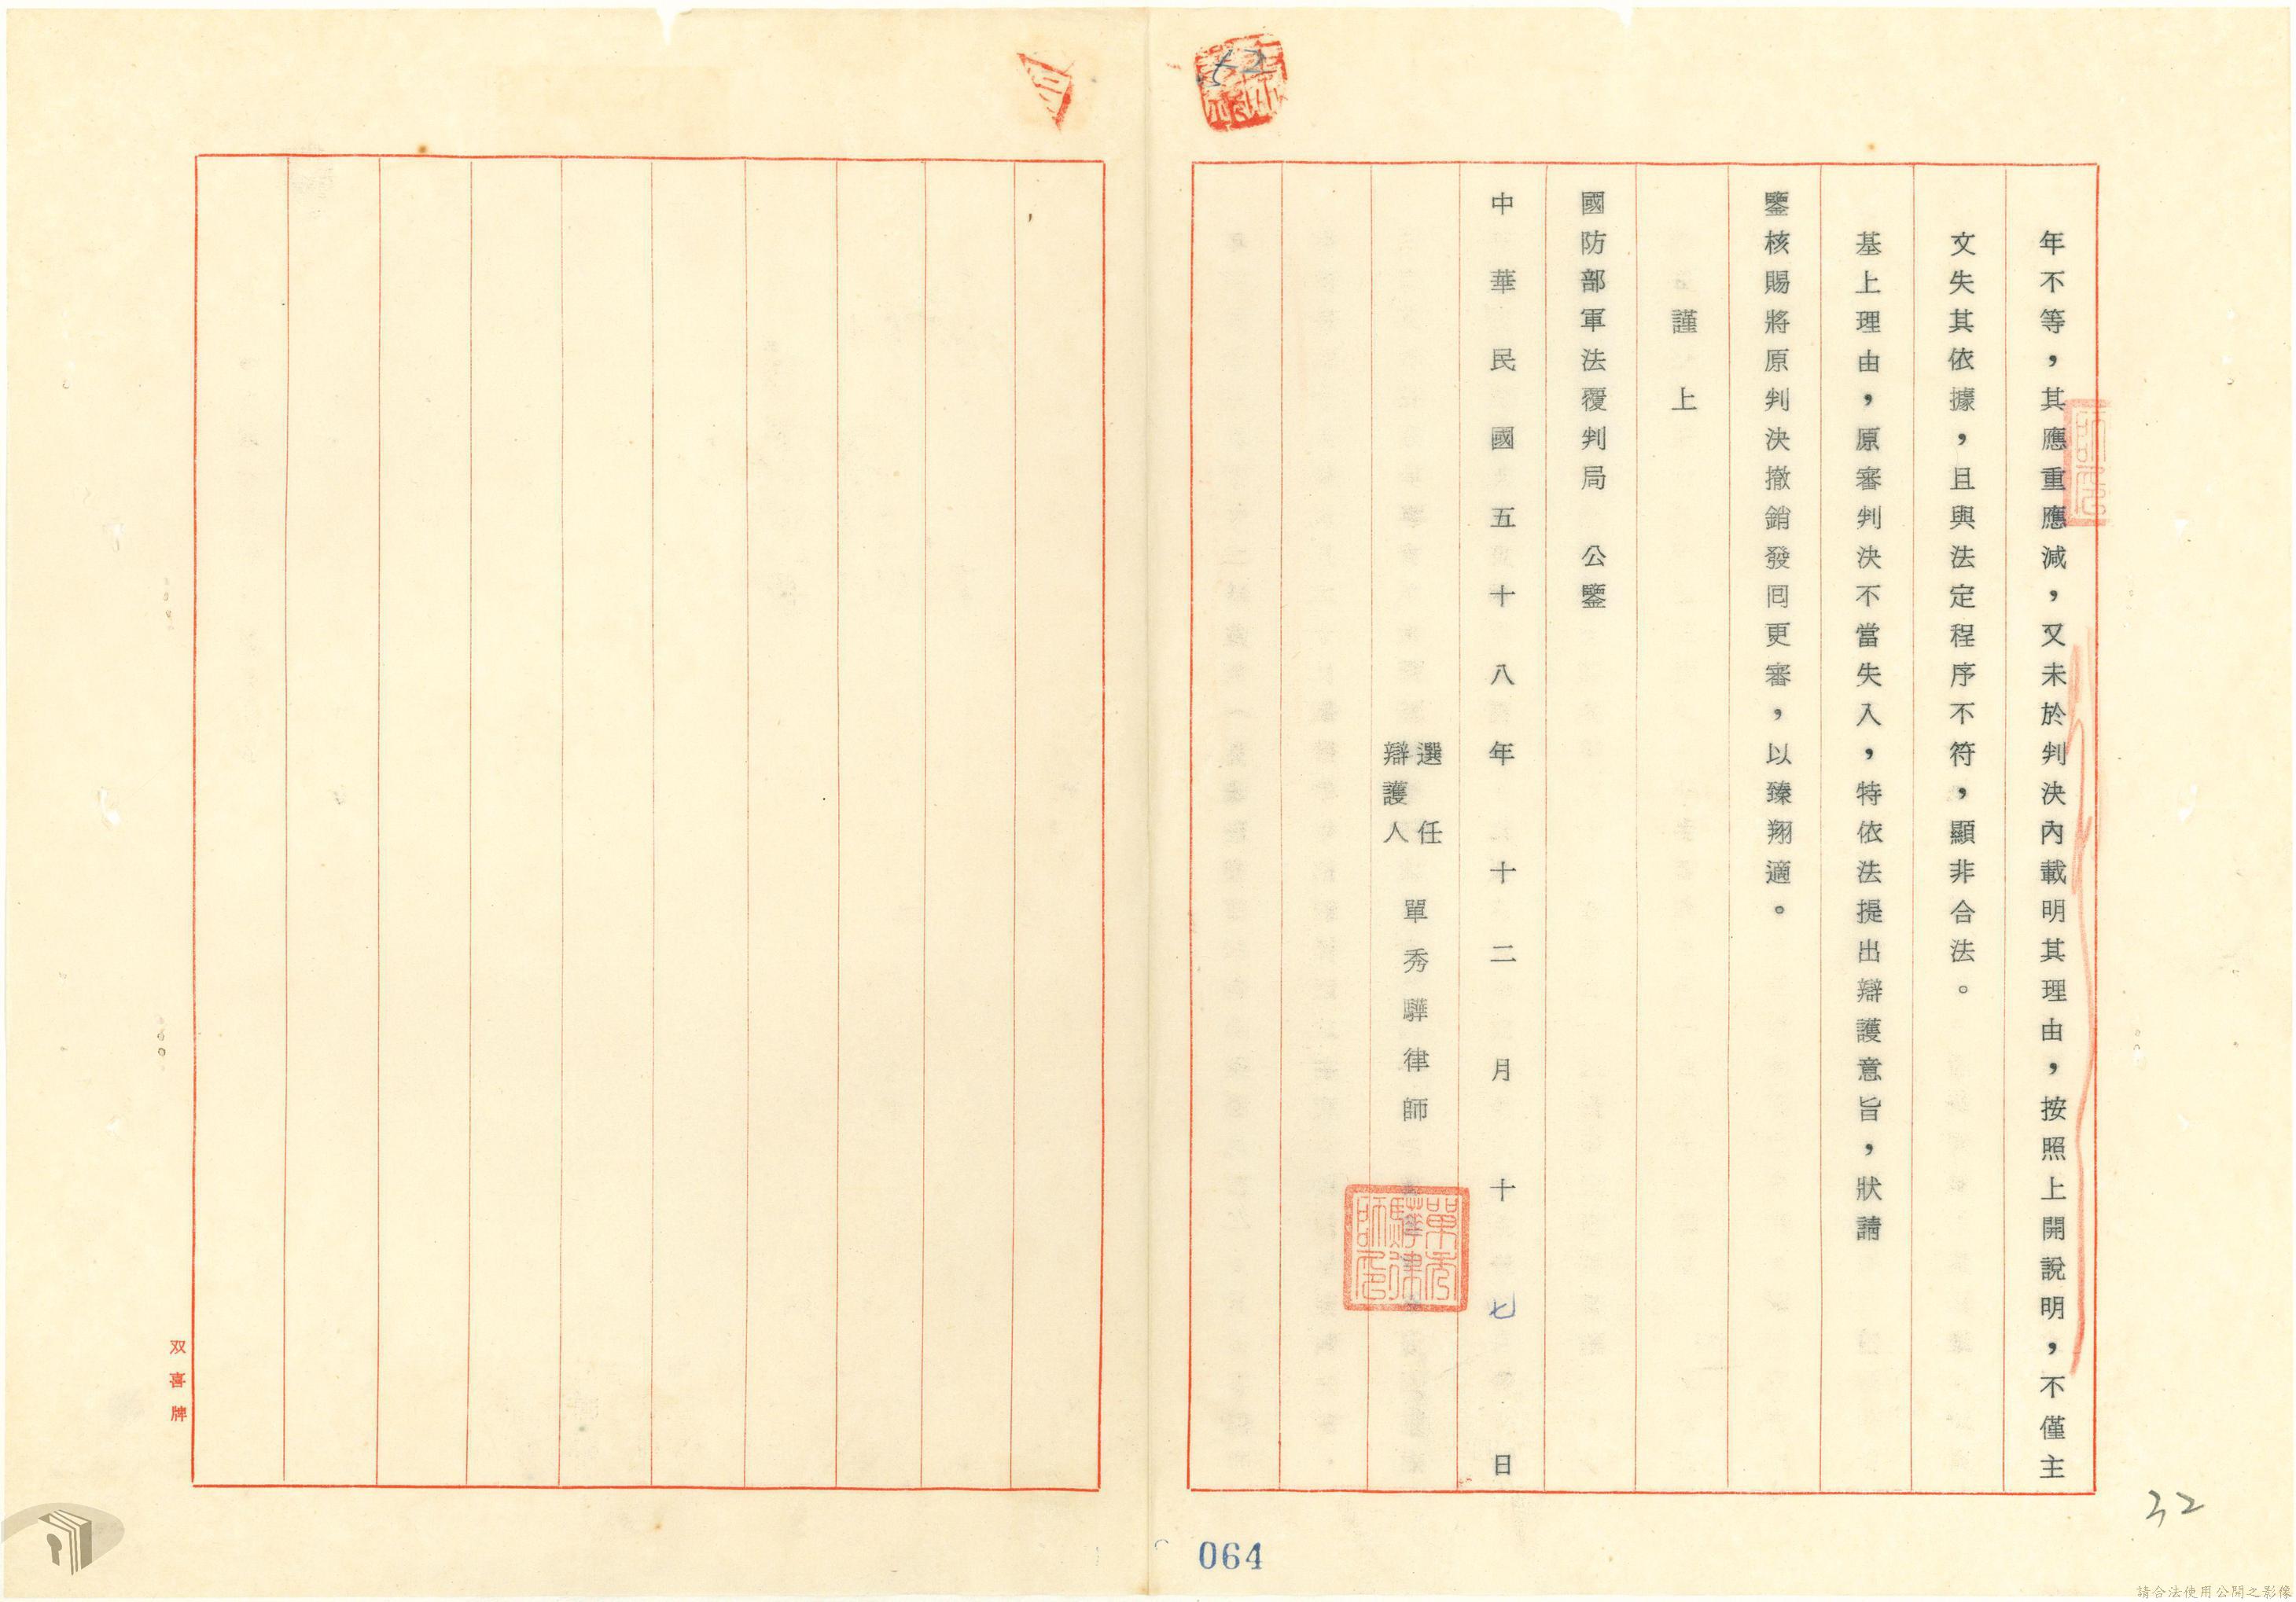 年不等，其應重應減，又未於判決內載明其理由，按照上開說明，不僅主
文失其依據，且與法定程序不符，顯非合法。
基上理由，原審判決不當失入，特依法提出辯護意旨，狀請
鑒核賜將原判決撤銷發回更審，以臻翔適。
謹上
國防部軍法覆判局　公鑒
中華民國五十八年十二月十七日
選任
辯護人
單秀驊律師
單秀驊律師印
師印
52
32
064
双喜牌
請合法使用公開之影像